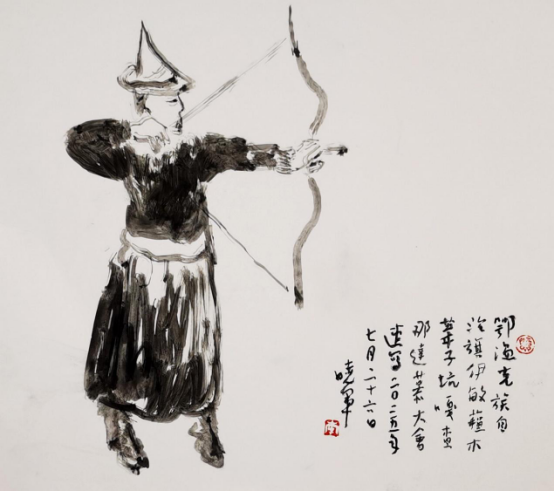 鄂温克族自
治旗伊敏蘇木
葦子坑嘎查
那達慕大會
速写二〇二五年
七月二十六日
曉軍